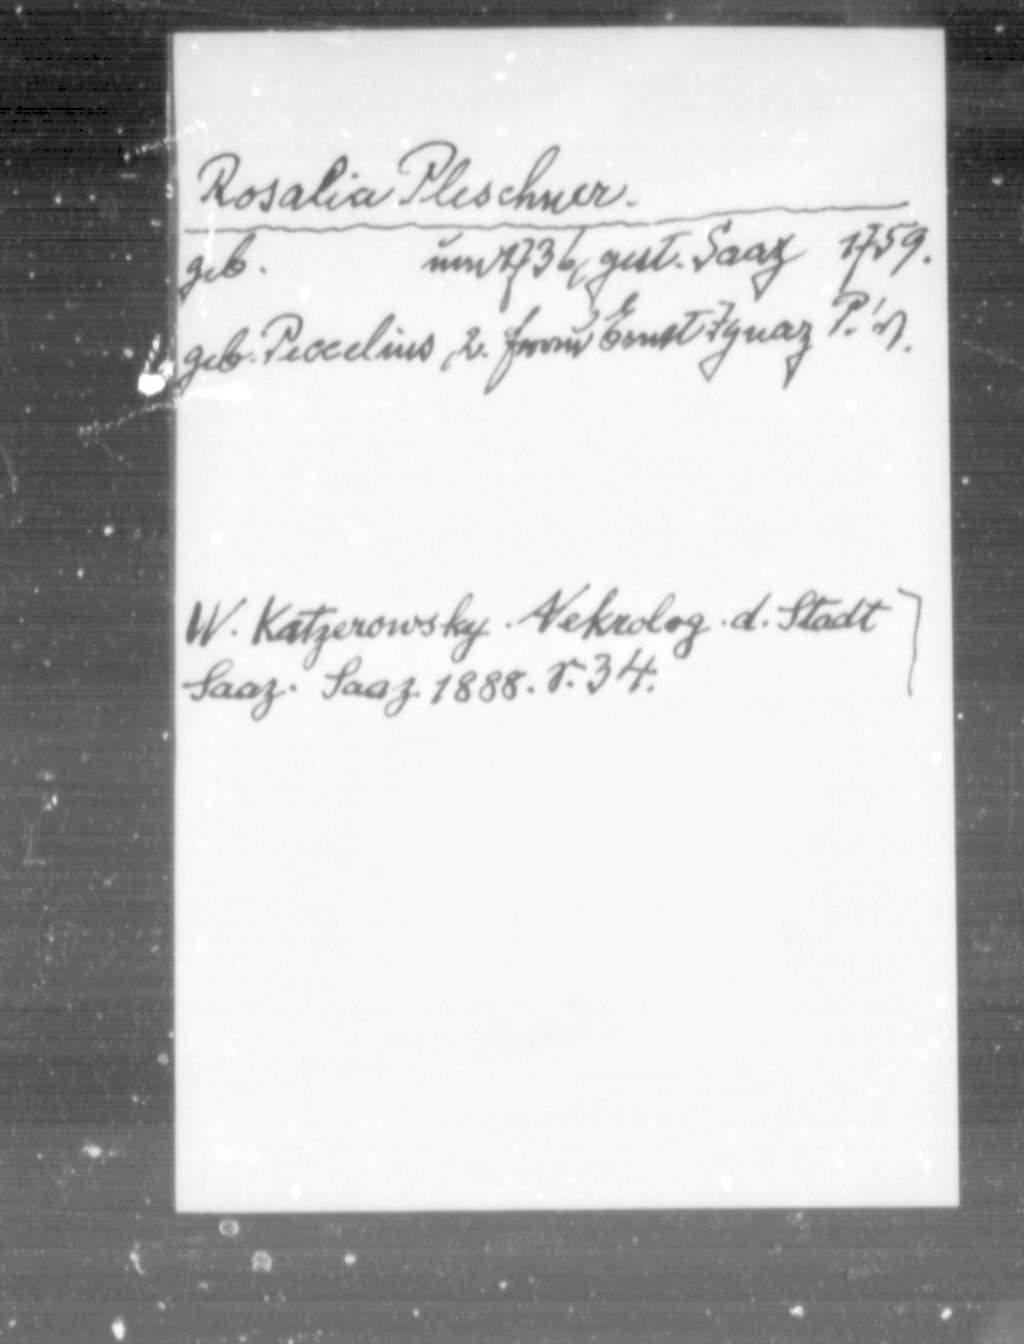 Rosalia Pleschner.
geb. um 1736, gest. Saaz 1759.
geb. Peccelius, 2. Frau Ernst Ignaz P.'s.
W. Katzerowsky. Nekrolog. d. Stadt
Saaz. Saaz. 1888. S. 34.